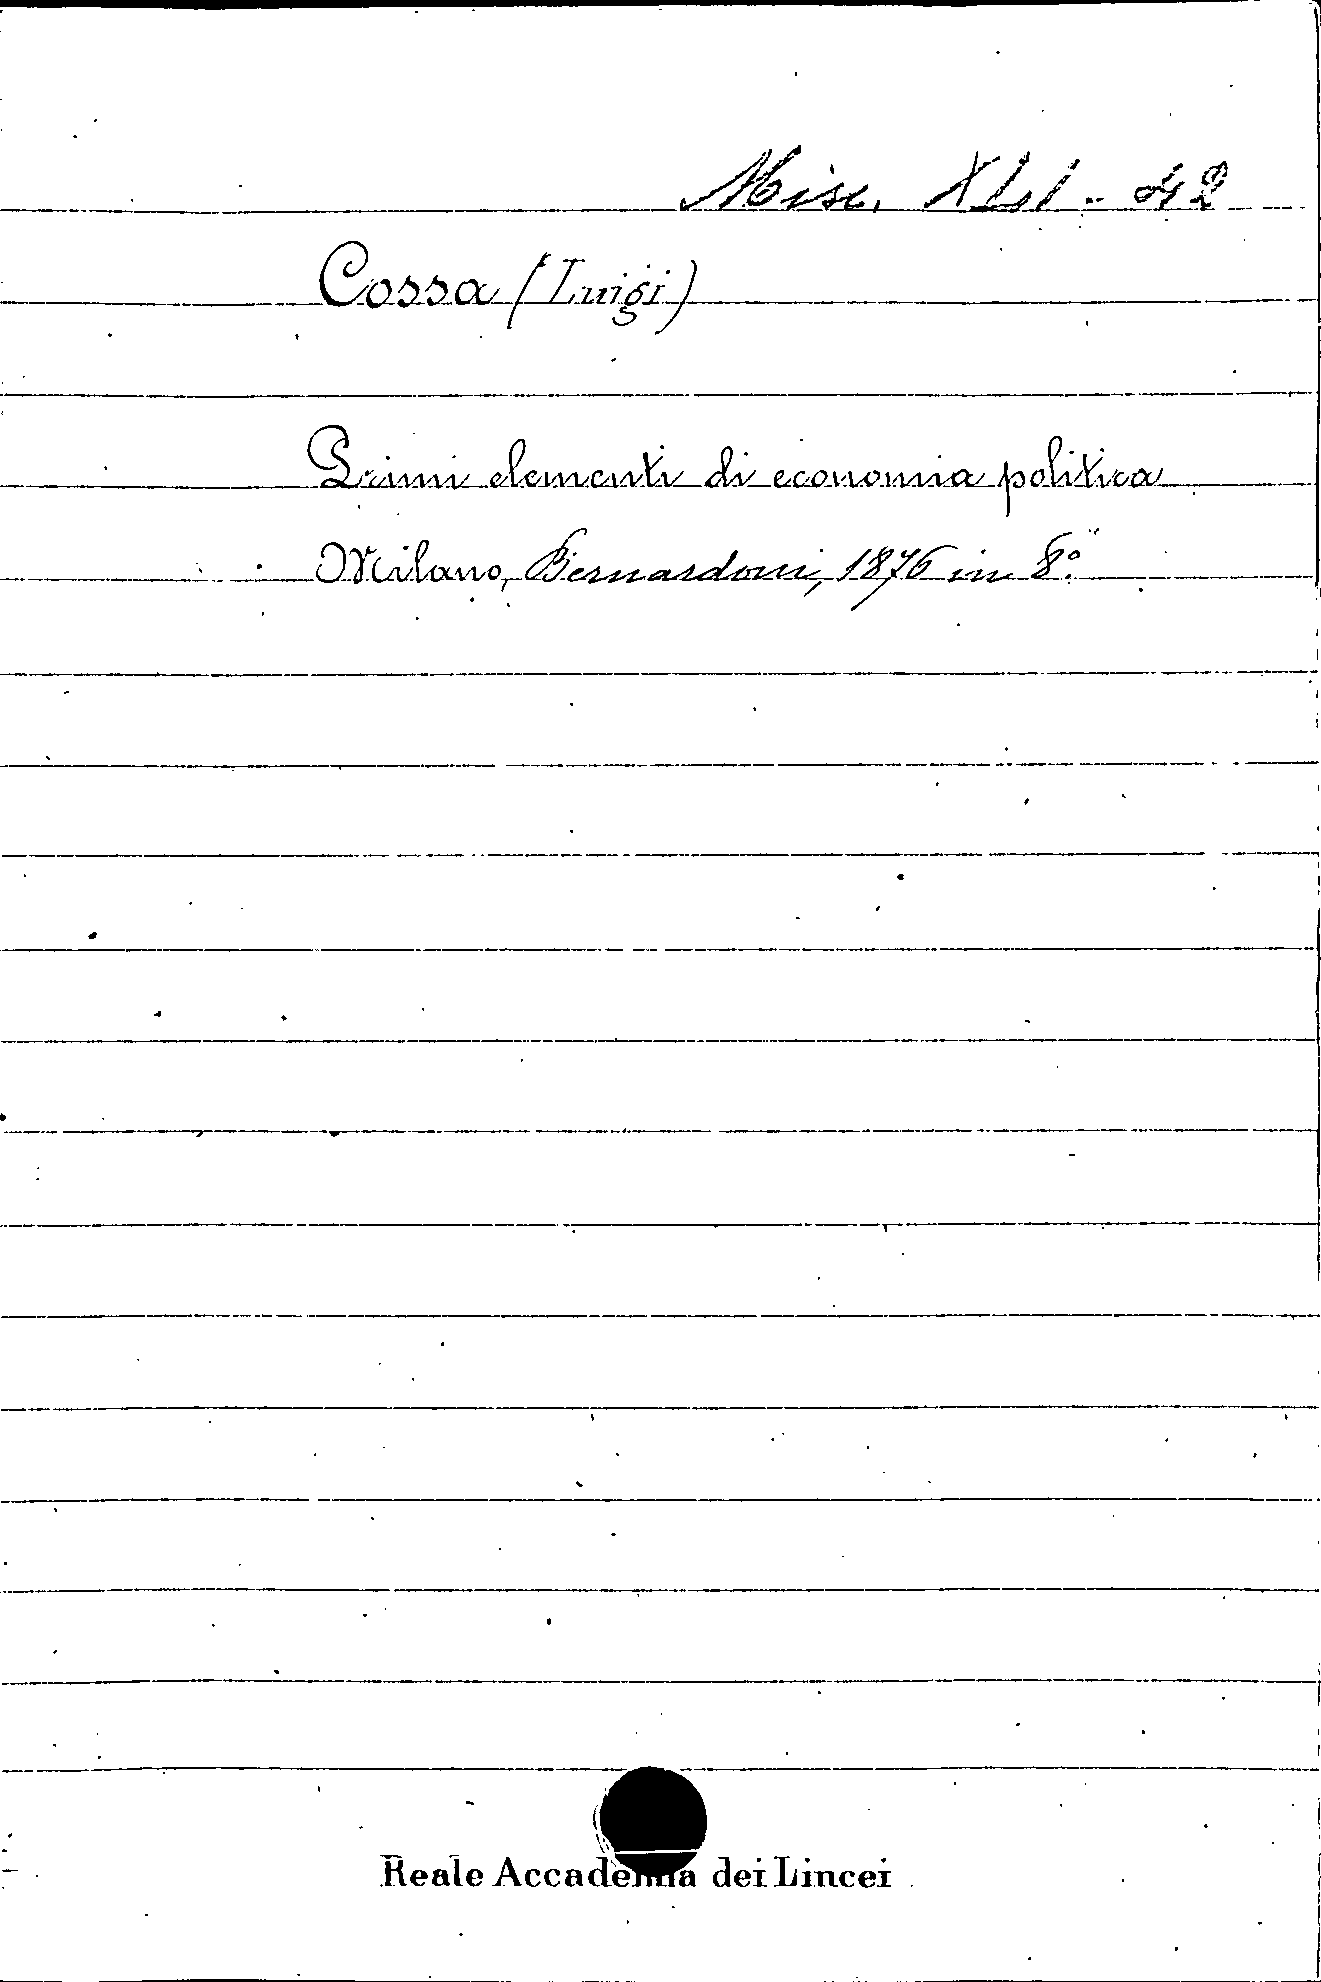 Misc. XLI - 42
Cossa (Luigi)
Primi elementi di economia politica
Milano, Bernardoni, 1876 in 8.°
Reale Accademia dei Lincei